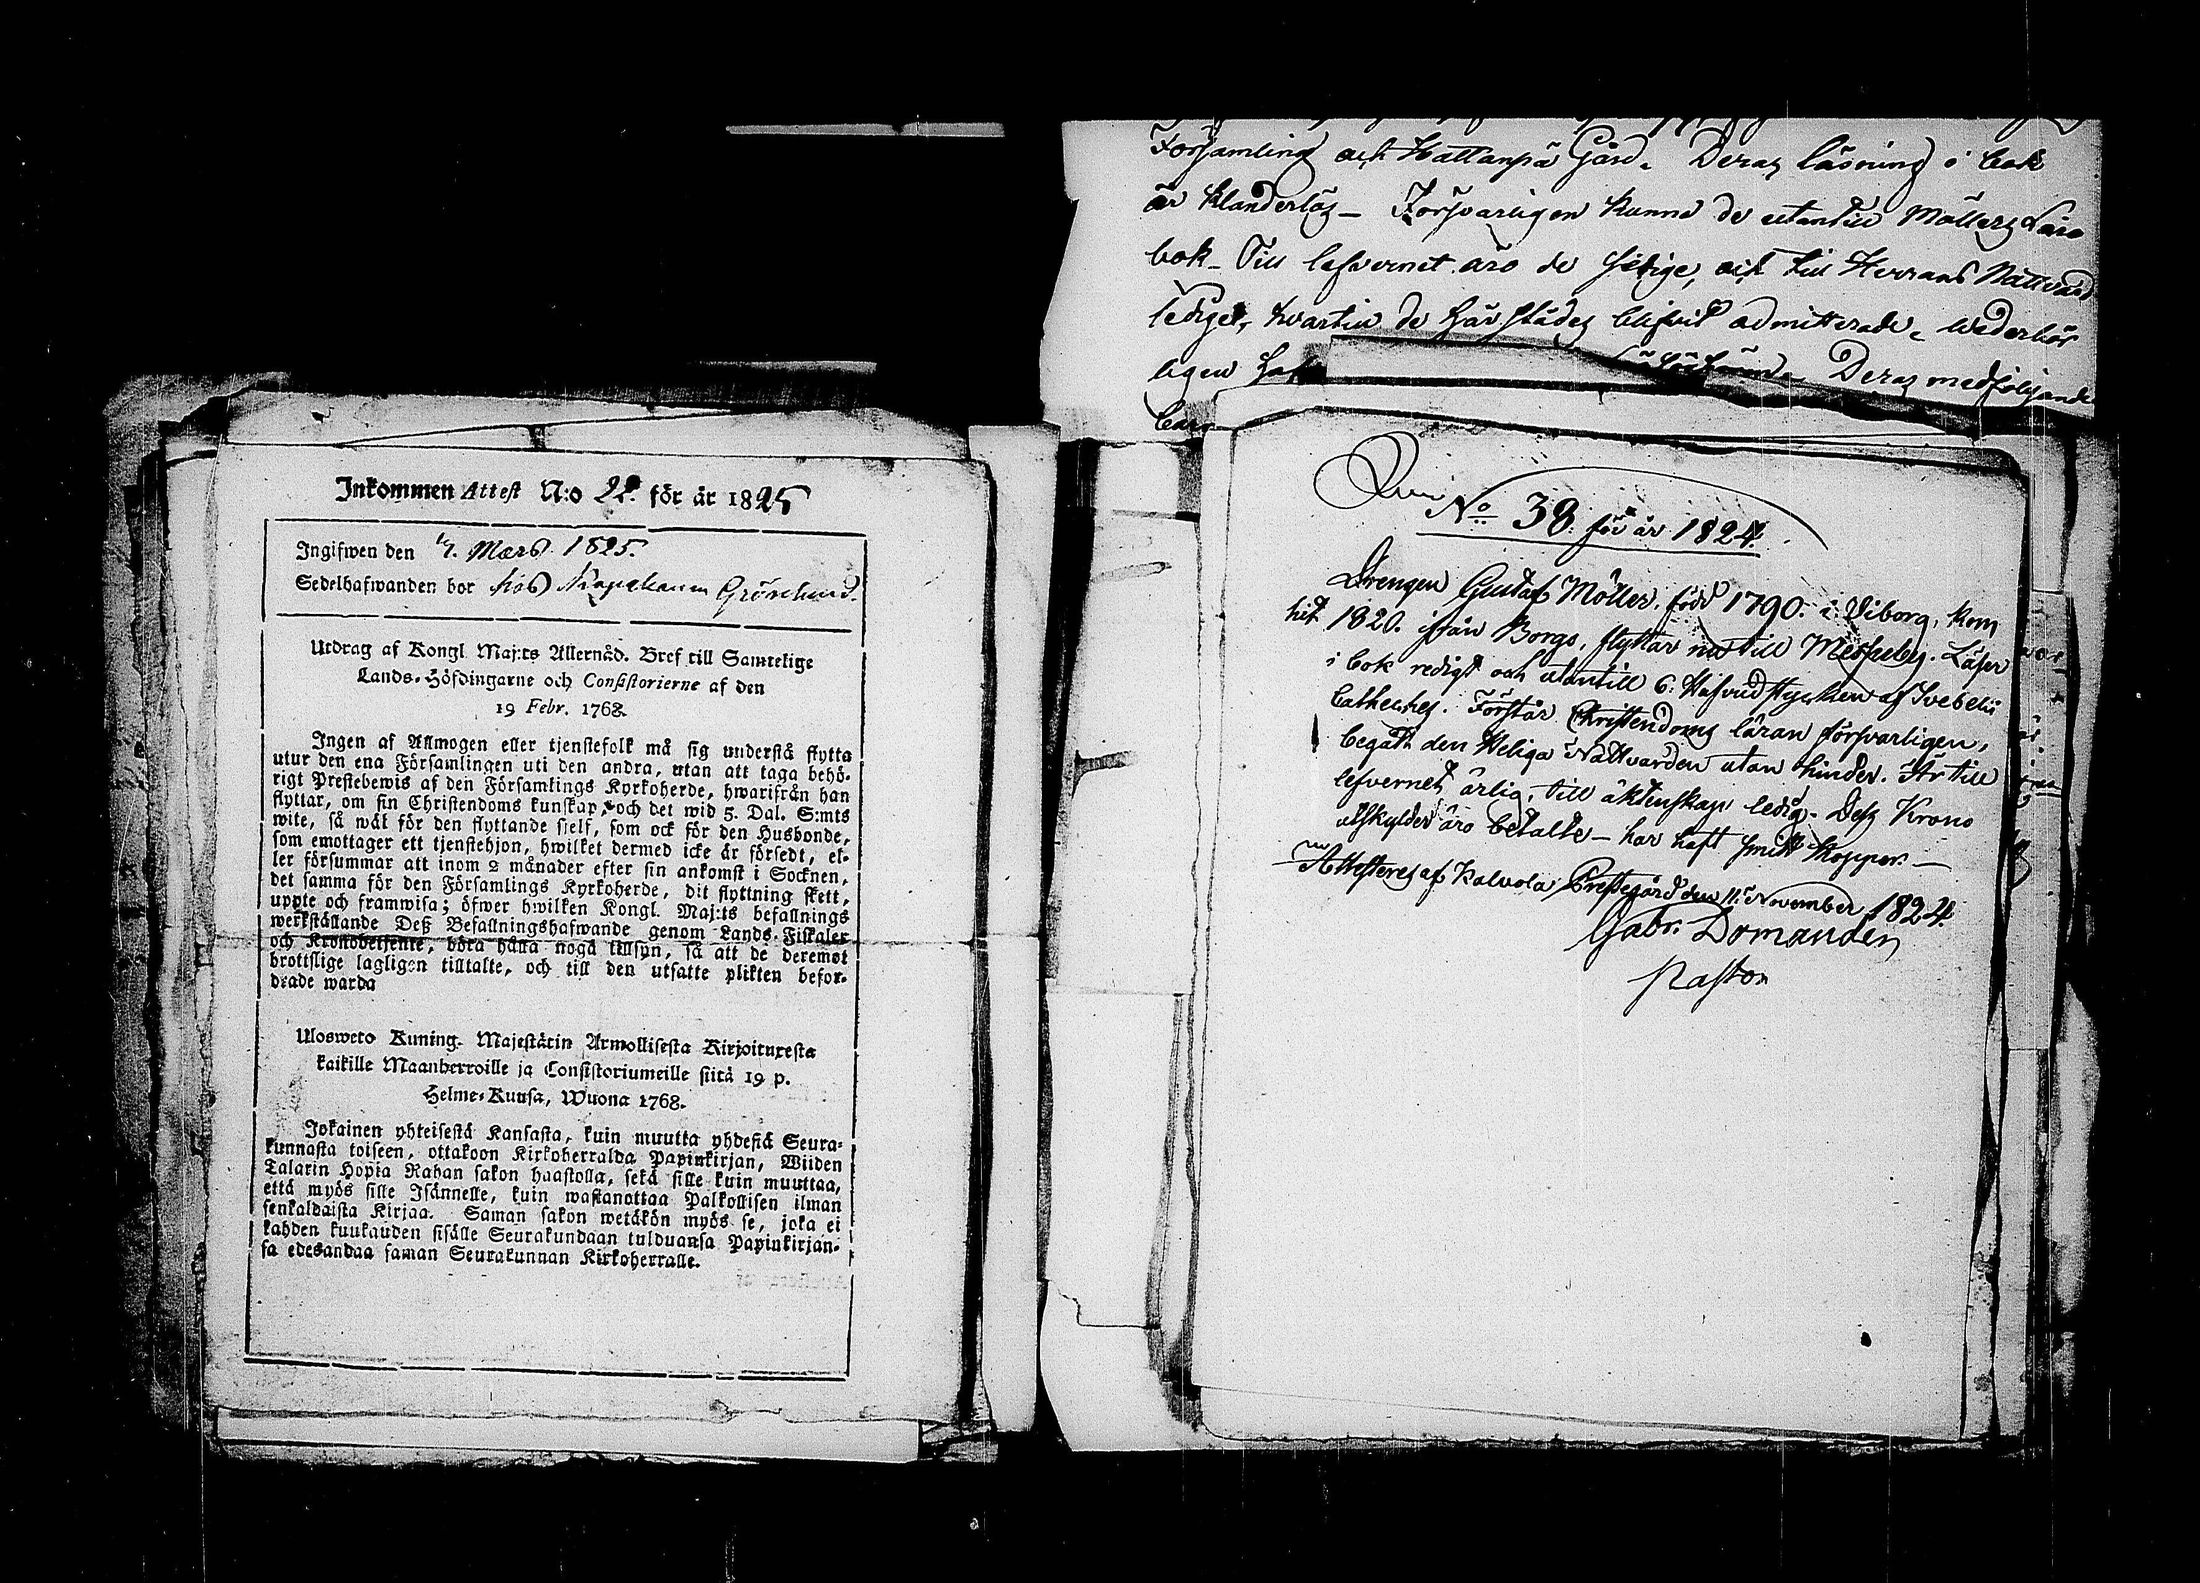 Inkommen Attest N:o 22. för år 1825
Ingifwen den 17. Mars 1825.
Sedelhafwanden bor hos Grönlund.
Utdrag af Kongl. Maj:ts Allernåd. Bref till Samtelige
Lands-Höfdingarne och Consistorierne af den
19 Febr. 1768.
Ingen af Allmogen eller tjenstefolk må sig understå flytta
utur den ena Församlingen uti den andra, utan att taga behö-
rigt Prestebewis af den Församlings Kyrkoherde, hwarifrån han
flyttar, om sin Christendoms kunskap, och det wid 5. Dal. S:mts
wite, så wäl för den flyttande sjelf, som ock för den Husbonde,
som emottager ett tjenstehjon, hwilket dermed icke är försedt, el-
ler försummar att inom 2 månader efter sin ankomst i Socknen,
det samma för den Församlings Kyrkoherde, dit flyttning skett,
uppte och framwisa; öfwer hwilken Kongl. Maj:ts befallnings
werkställande Deß Befallningshafwande genom Lands-Fiskaler
och Kronobetjente, böra hålla noga tillsyn, så att de deremot
brottslige lagligen tilltalte, och till den utsatte plikten befor-
drade warda
Ulosweto Kuning. Majestätin Armollisesta Kirjoituxesta
kaikille Maanherroille ja Consistoriumeille siitä 19 p.
Helme-Kuusa, Wuona 1768.
Jokainen yhteisestä Kansasta, kuin muutta yhdestä Seura-
kunnasta toiseen, ottakoon Kirkoherralda Papinkirjan, Wiiden
Talarin Hopia Rahan sakon haastolla, sekä sille kuin muuttaa,
että myös sille Isännelle, kuin wastanottaa Palkollisen ilman
senkaldaista Kirjaa. Saman sakon wetäkön myös se, joka ei
kahden kuukauden sisälle Seurakundaan tulduansa Papinkirjan-
sa edesandaa saman Seurakunnan Kirkoherralle.
Församling och Hattanpä Gård. Deras läsning i bok
är klanderlös – Försvarligen kunna de utantill Möllers Läro
bok – Till lefvernet äro de sedige, och till Herrans Nattvard
ledige, hvartill de härstädes blifvit admitterade, wederbör
ligen Deras medföljande
No 38. för år 1824.
Drengen Gustaf Möller, född 1790. i Viborg, kom
hit 1820. ifrån Borgo, flyttar nu till Messuby. Läser
i bok redigt och utantill 6. Hufvudstycken af Svebelii
Catheches. Förstår Christendoms läran försvarligen,
begått den Heliga Nattvarden utan hinder. Är till
lefvernet ärlig, till äktenskap ledig. Dess Krono
utskylder äro betalte – har haft Koppor. –
Attesteres af Kalvola Prestegård den 11. November 1824.
Gabr. Domander
Pastor